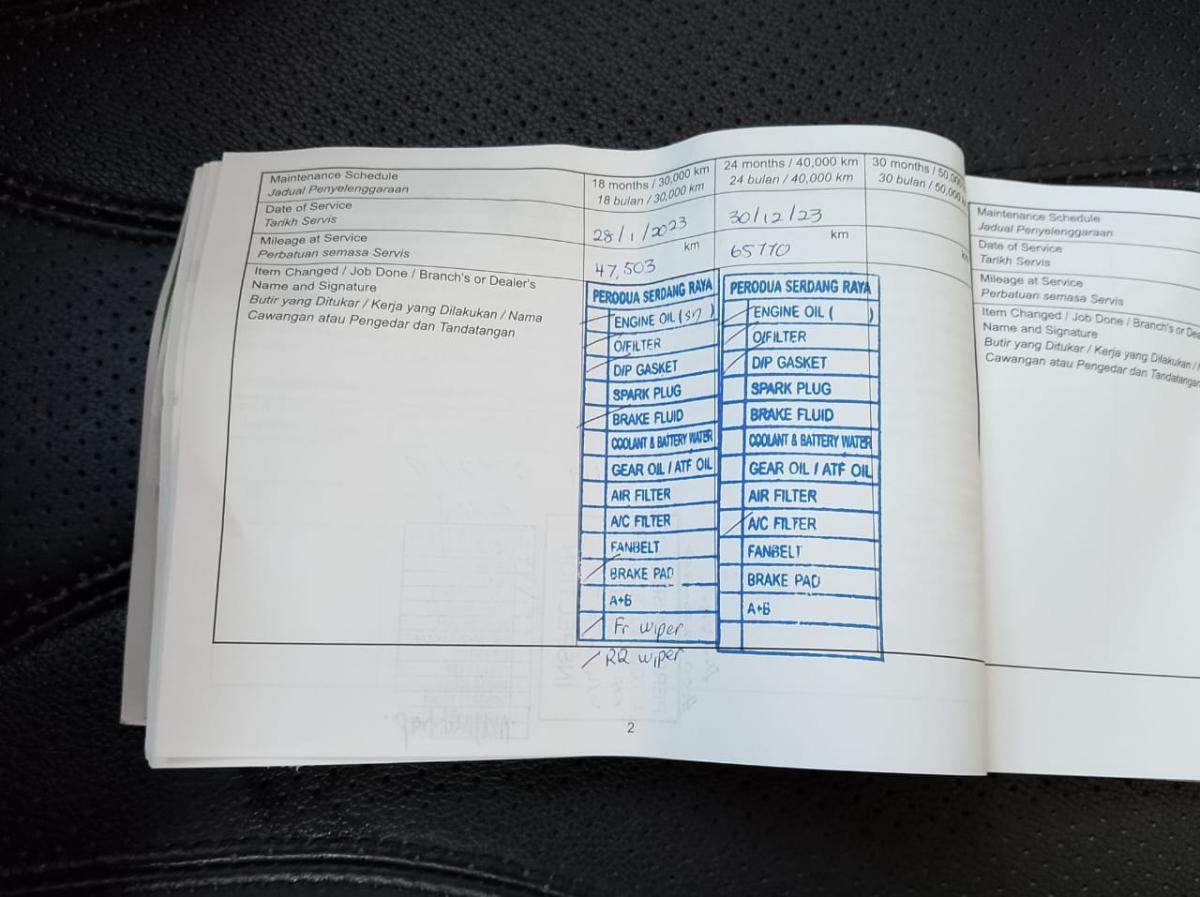 Maintenance Schedule
Jadual Penyelenggaraan
18 months / 30,000 km
18 bulan / 30,000 km
24 months / 40,000 km
24 bulan / 40,000 km
30 months / 50,000
30 bulan / 50,000
Date of Service
Tarikh Servis
28/1/2023
30/12/23
Mileage at Service
Perbatuan semasa Servis
47,503
km
65770
km
Item Changed / Job Done / Branch's or Dealer's
Name and Signature
Butir yang Ditukar / Kerja yang Dilakukan / Nama
Cawangan atau Pengedar dan Tandatangan
PERODUA SERDANG RAYA
ENGINE OIL (      )
O/FILTER
D/P GASKET
SPARK PLUG
BRAKE FLUID
COOLANT & BATTERY WATER
GEAR OIL / ATF OIL
AIR FILTER
A/C FILTER
FANBELT
BRAKE PAD
A+B
Fr wiper
RR wiper
PERODUA SERDANG RAYA
ENGINE OIL (      )
O/FILTER
D/P GASKET
SPARK PLUG
BRAKE FLUID
COOLANT & BATTERY WATER
GEAR OIL / ATF OIL
AIR FILTER
A/C FILTER
FANBELT
BRAKE PAD
A+B
2
Maintenance Schedule
Jadual Penyelenggaraan
Date of Service
Tarikh Servis
Mileage at Service
Perbatuan semasa Servis
Item Changed / Job Done / Branch's or
Name and Signature
Butir yang Ditukar / Kerja yang Dilakukan /
Cawangan atau Pengedar dan Tandatangan